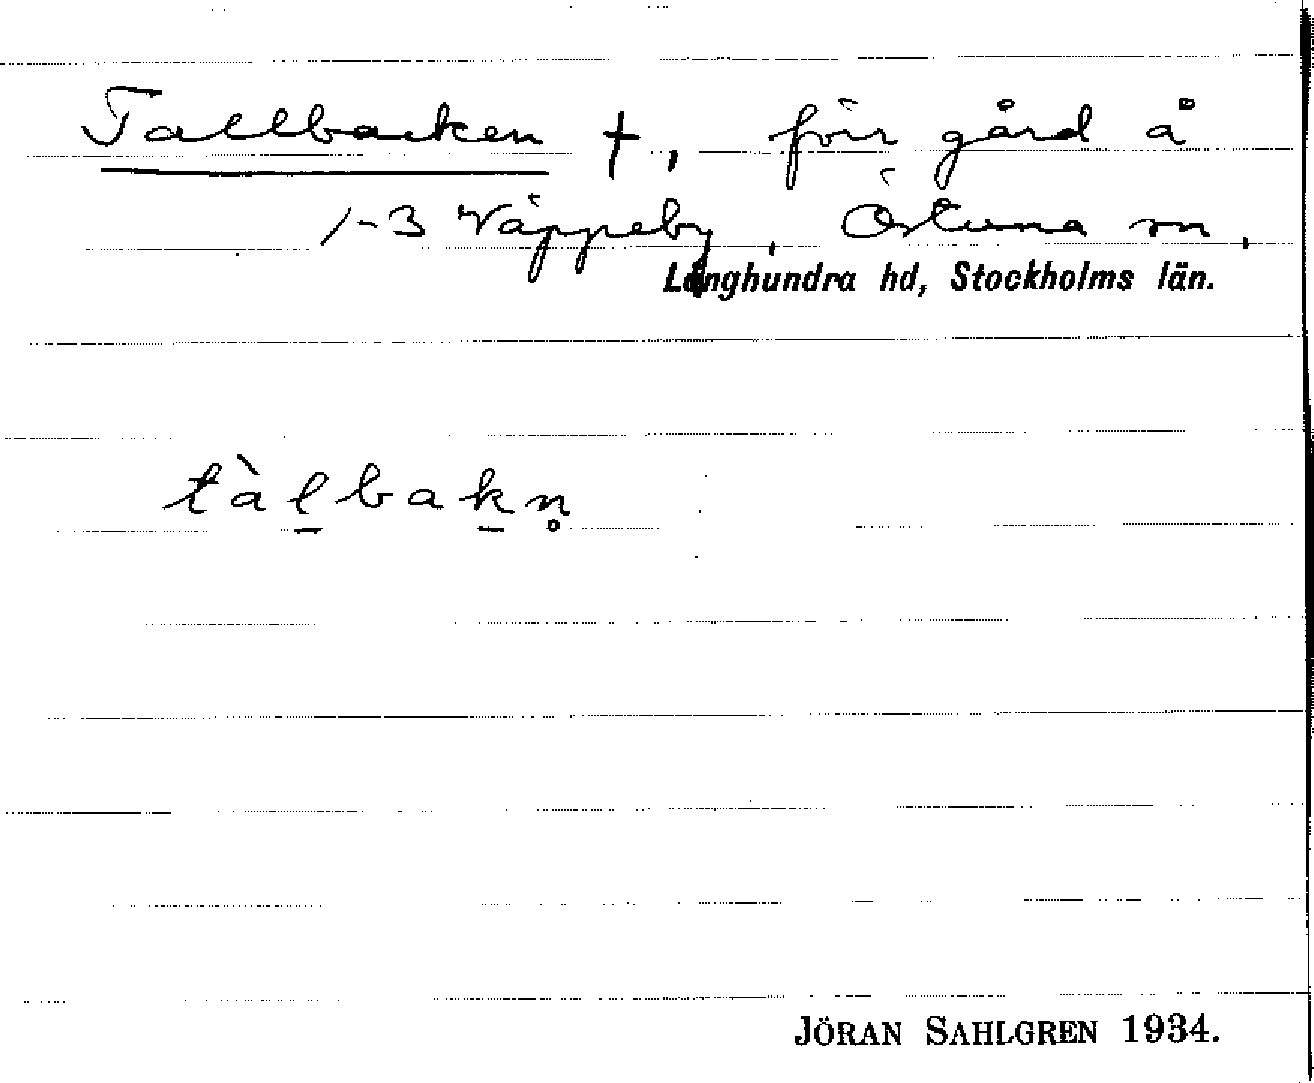 Tallbacken †, förr gård å
1-3 Väppeby, Östuna sn,
Långhundra hd, Stockholms län.
tàl̲bak̲n̥
JÖRAN SAHLGREN 1934.